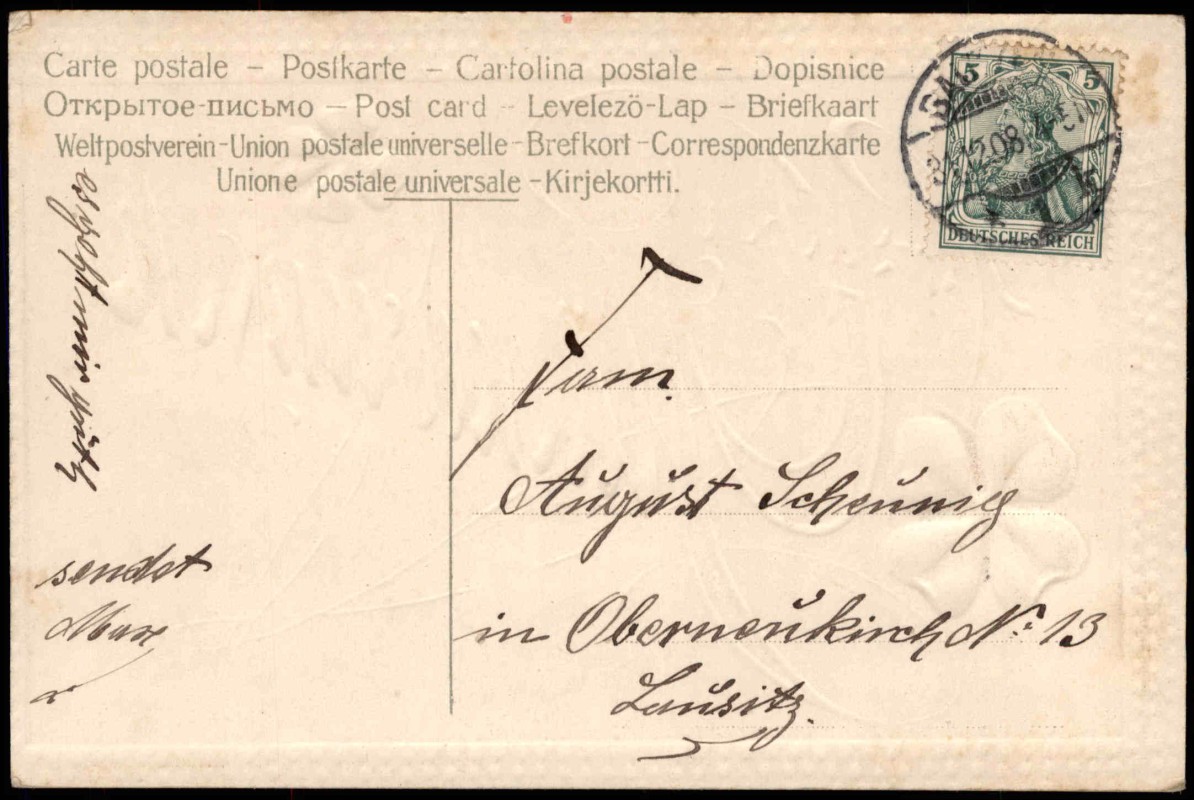 Carte postale – Postkarte – Cartolina postale – Dopisnice
Открытое-письмо – Post card – Levelezö-Lap – Briefkaart
Weltpostverein-Union postale universelle-Brefkort-Correspondenzkarte
Unione postale universale-Kirjekortti.
5 5
12.08
DEUTSCHES REICH
sendet
Max
Fam.
August Scheunig
in Oberneukirch Nr. 13
Lausitz.